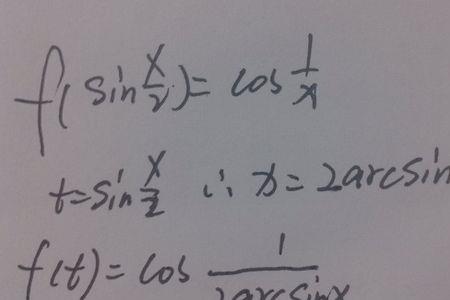 f(sin x/2) = cos 1/x
t=sin x/2 ∴ x = 2arcsin
f(t) = cos 1/2arcsinx